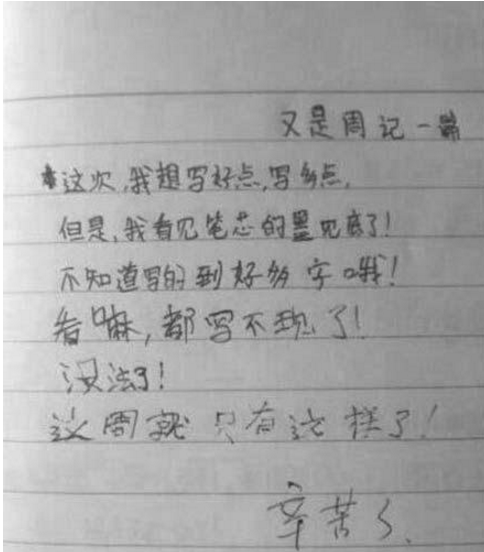 又是周记一篇
这次,我想写好点,写多点,
但是,我看见笔芯的墨见底了!
不知道写的到好多字哦!
看嘛,都写不现了!
没法了!
这周就只有这样了!
辛苦了.